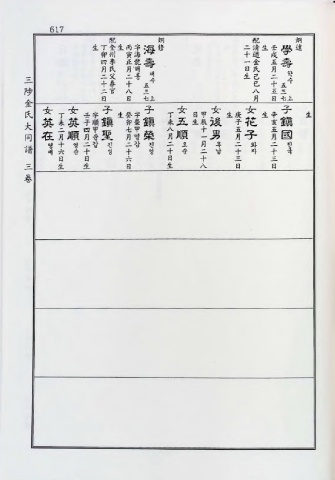 617
三陟金氏大同譜 三卷
炯達
學壽 학수 五三七上
壬戌五月二十五日
生
配清道金氏己巳八月
二十一生
炯珞
海壽 해수 五三七上
字海龍해룡
丙寅正月二十八日
生
配全州李氏父春官
丁卯四月二十二日
生
子 鎭國 진국
辛亥五月二十三日
生
女 花子 화자
庚子五月二十三日
生
女 後男 후남
甲辰十一月二十八
日生
女 五順 오순
丁未八月二十日生
子 鎭榮 진영
字榮甲영갑
癸卯七月二十六日
生
子 鎭聖 진성
字順甲순갑
壬子四月二十日生
女 英順 영순
丁未二月十六日生
女 英在 영재